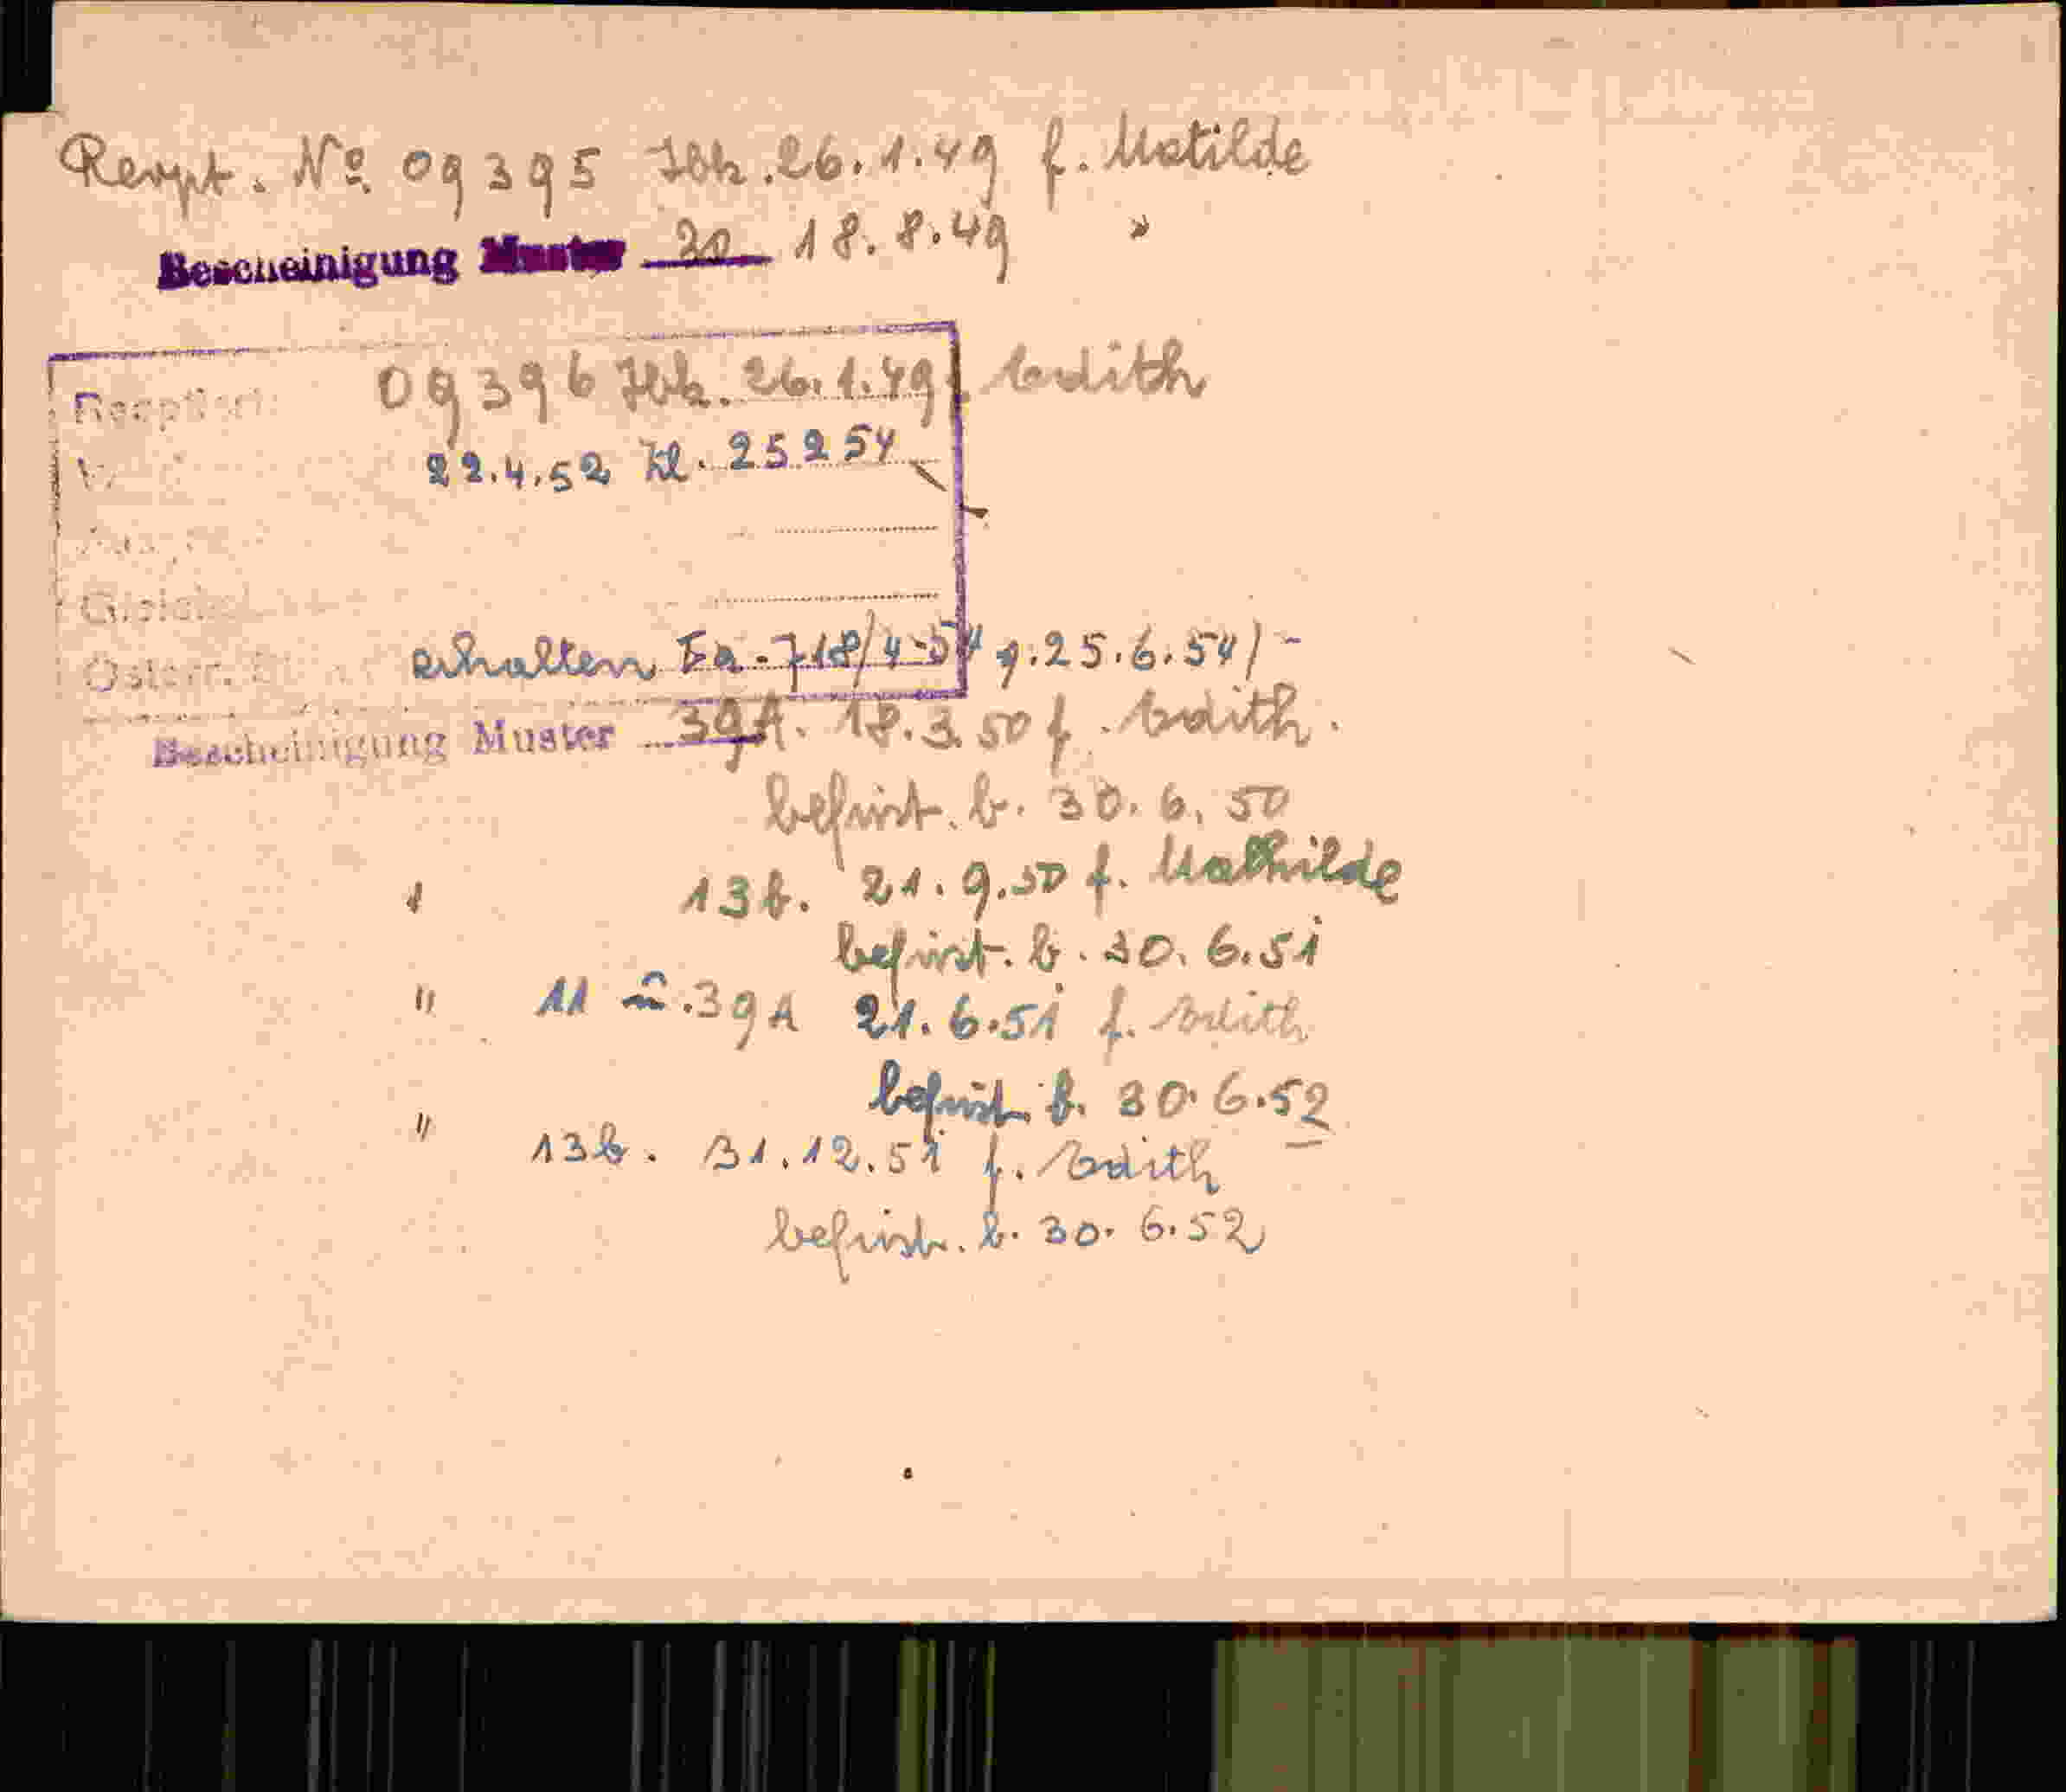 Rexpt. No. 09395 Ibk. 26.1.49 f. Matilde
Bescheinigung Muster 20 18.8.49 "
09396 Ibk. 26.1.49 f. Edith
22.4.52 Zl. 25254
erhalten Ea-718/4-54 v. 25.6.54/-
Bescheinigung Muster 39A. 18.3.50 f. Edith.
befrist. b. 30.6.50
13b. 21.9.50 f. Mathilde
befrist. b. 30.6.51
" 11 u. 39A 21.6.51 f. Edith
befrist. b. 30.6.52
" 13b. 31.12.51 f. Edith
befrist. b. 30.6.52